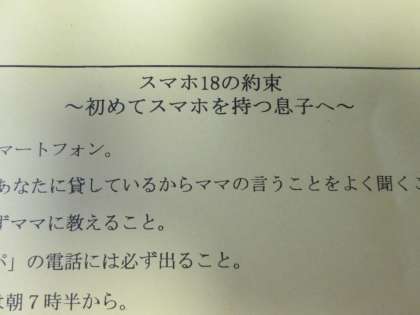 スマホ18の約束
～初めてスマホを持つ息子へ～
マートフォン。
あなたに貸しているからママの言うことをよく聞くこ
ずママに教えること。
パ」の電話には必ず出ること。
は朝７時半から。